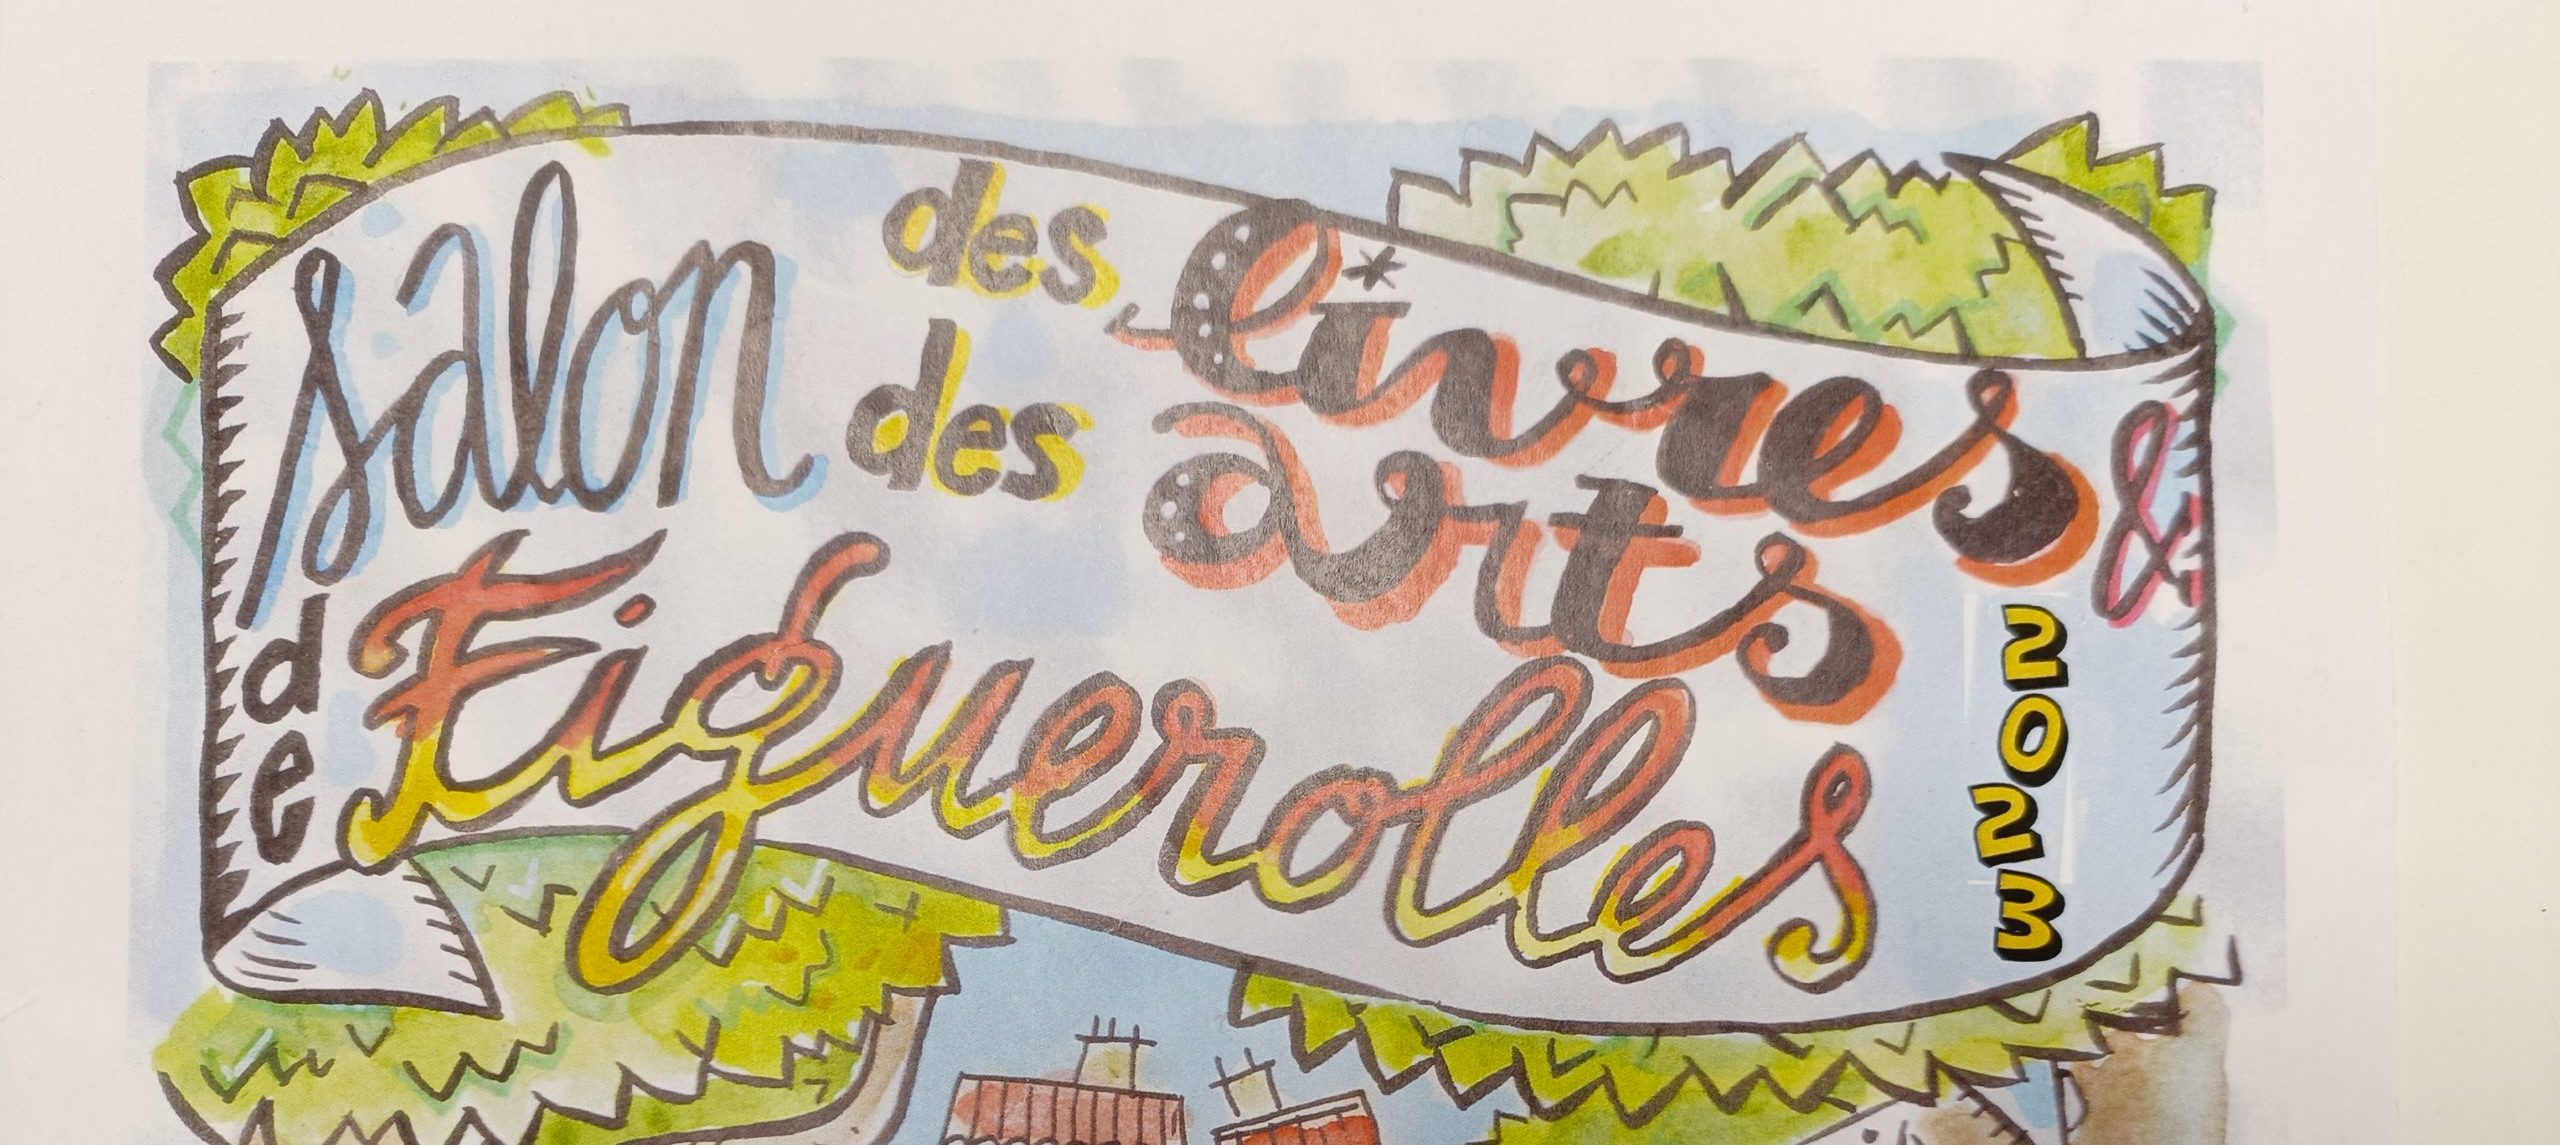 salon des livres &
des arts
de Figuerolles
2023